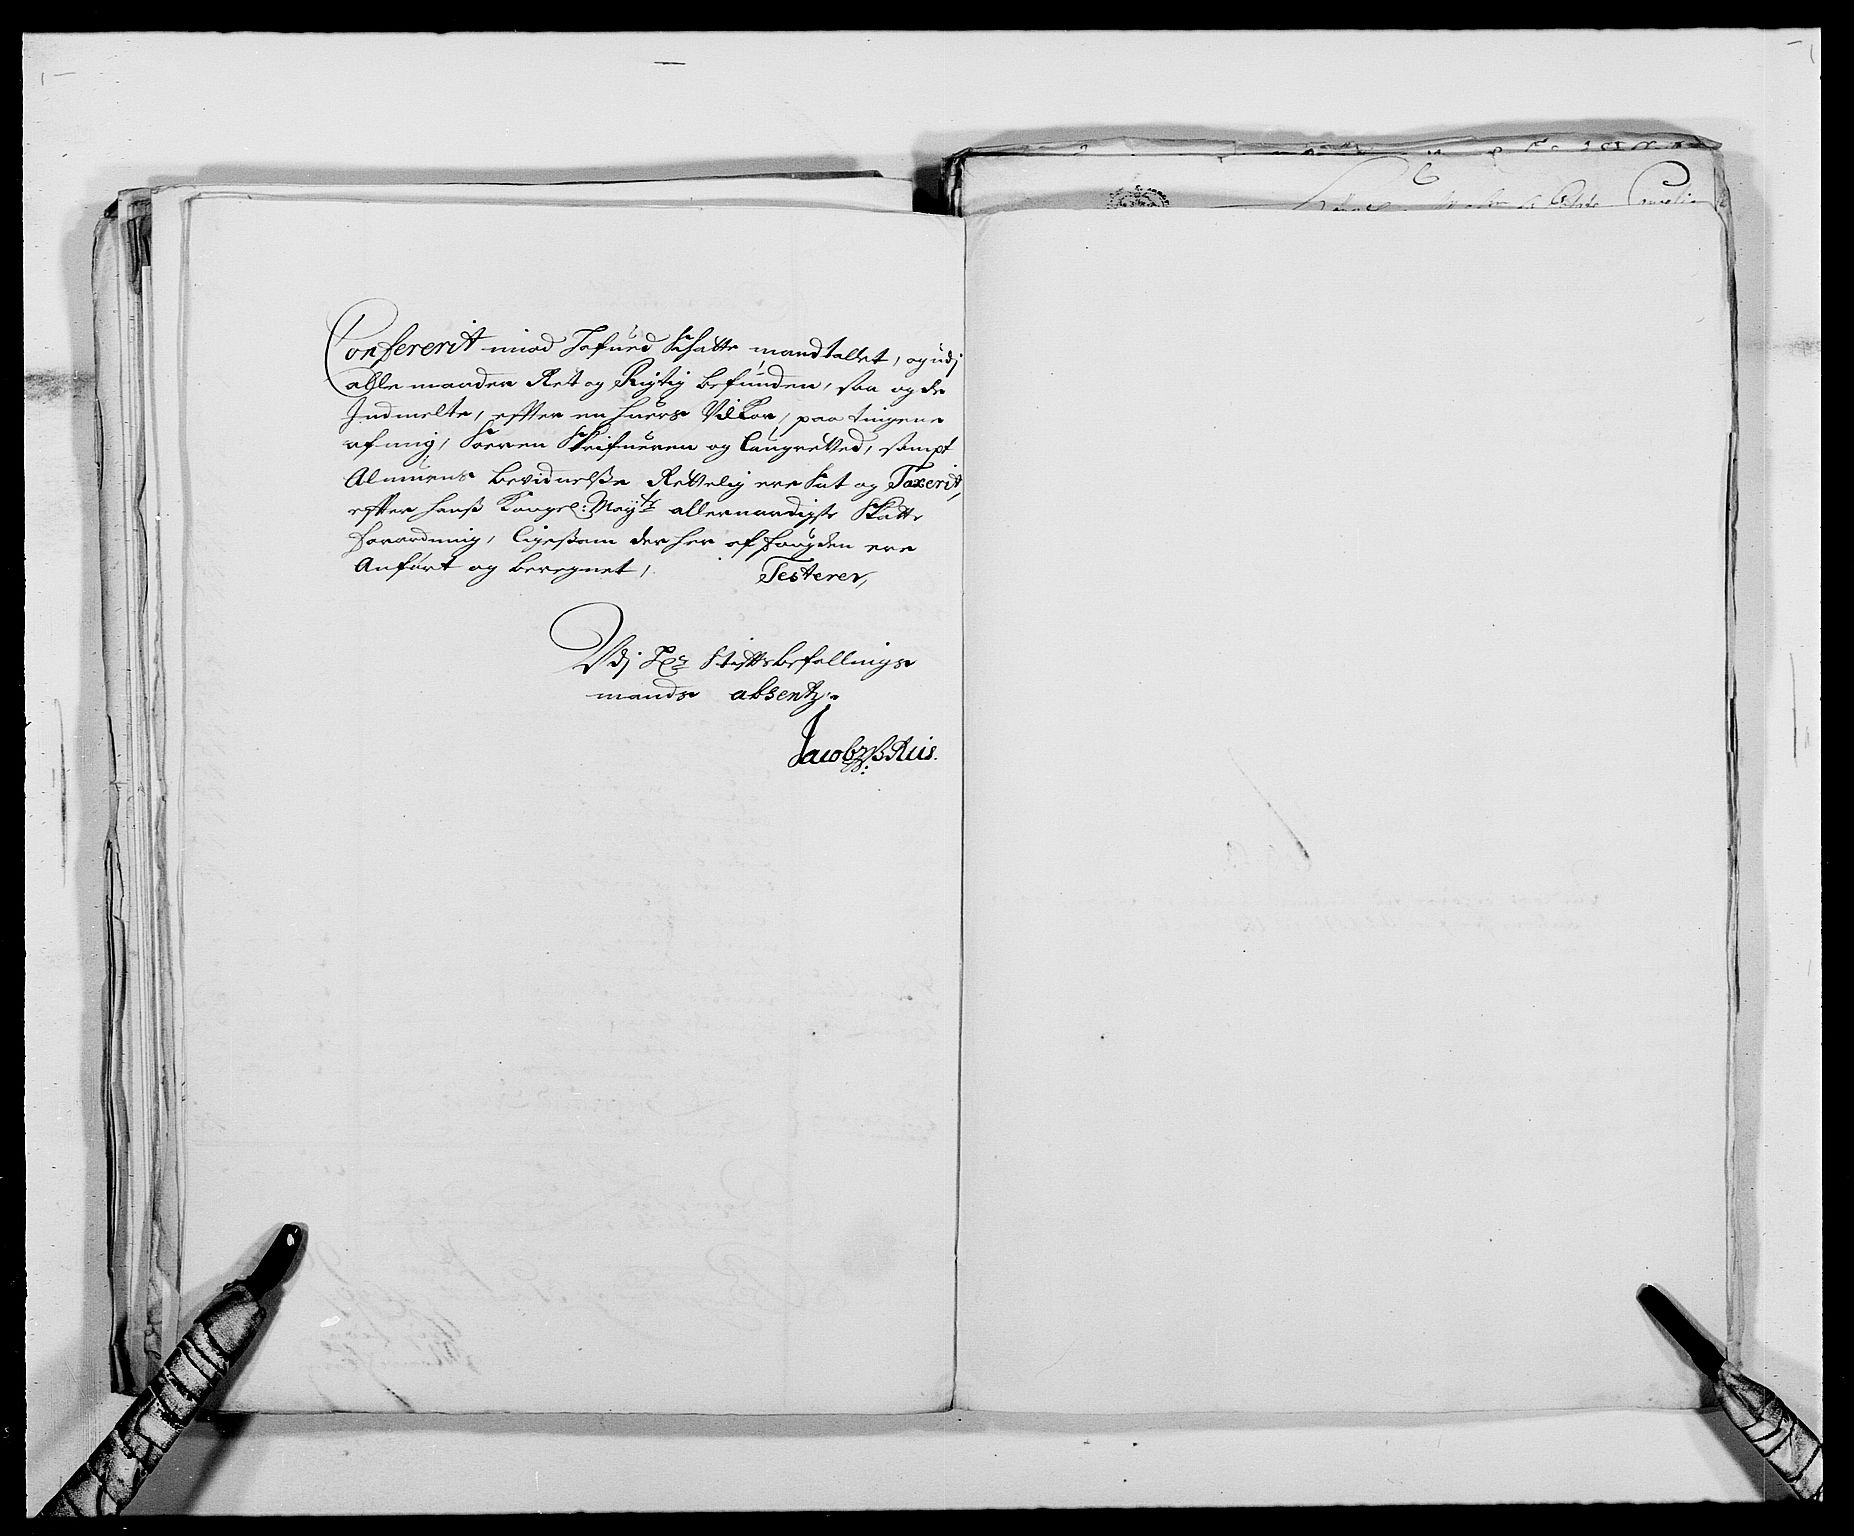 Confererit med Hofued Schatte mandtallet, og udj
alle maader Ret og Rigtig befunden, saa og de
Indmelte, effter en huers Vilkor, paa tingene
af mig, Soren Skrifueren og Laugretted, sampt
Almuens beviduelße Rettelig ere Sat og Taxerit,
effter Hanß Kongel: Mayts allernaadigste Skatte
Forordning, ligeßom der her af Fougden ere
Anfört og beregnet,
Testerer,
Udj Hr Stiftsbefallings
mands absentz.
Jacob Riis.